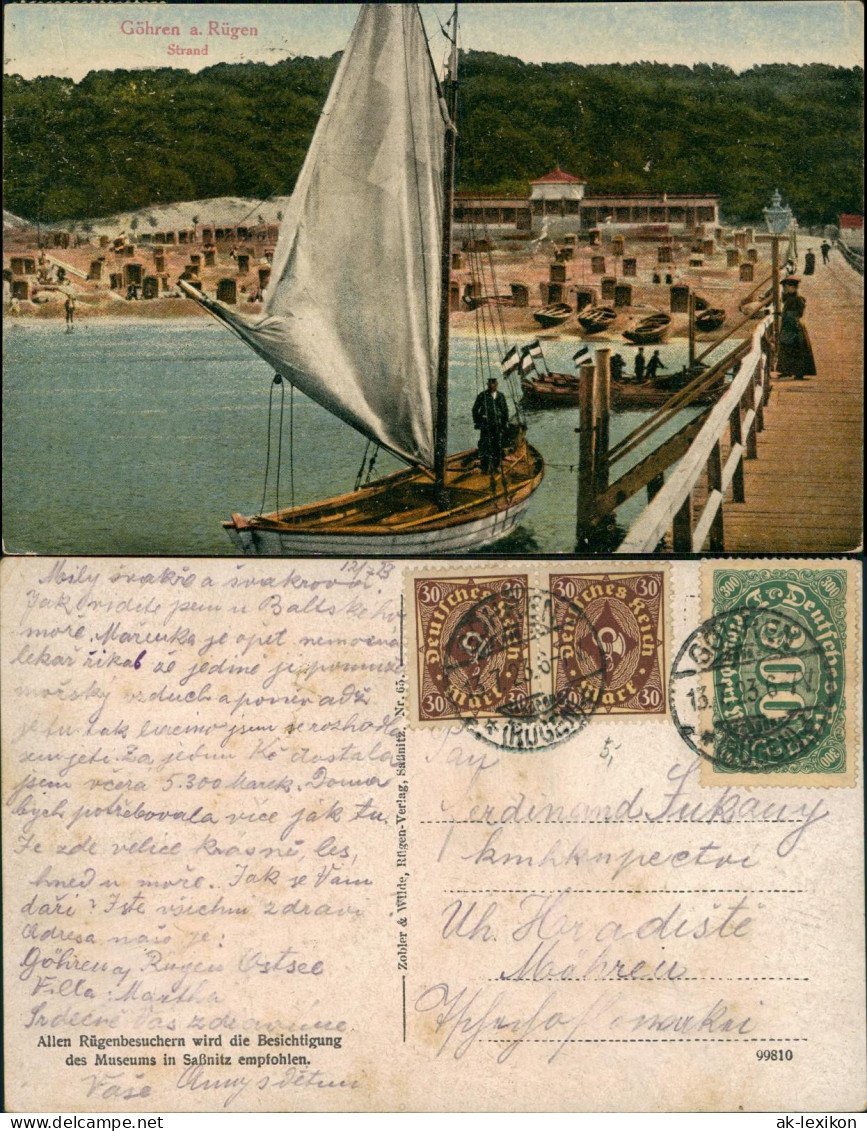 Göhren a. Rügen
Strand
12/7 23
Milý švakře a švakrová
Jak vidíte jsem u Baltského
moře. Mařenka je opět nemocna
lékař říkal že jedině jí pomůže
mořský vzduch a poněvadž
je tu tak levno jsem se rozhodla
sem jeti. Za jednu Kč dostala
jsem včera 5.300 Marek. Doma
bych potřebovala více jak tu.
Je zde velice krásně, les,
hned u moře. Jak se Vám
daří? Jste všichni zdrávi
Adresa naše je:
Göhren a/ Rügen Ostsee
Villa: Martha
Srdečně Vás zdravíme
Allen Rügenbesuchern wird die Besichtigung
des Museums in Saßnitz empfohlen.
Vaše Anny s dětmi
Zobler & Wilde, Rügen-Verlag, Saßnitz, Nr. 65.
30 30
Deutsches Reich
Mark
30 30
30 30
Deutsches Reich
Mark
30 30
300 300
Deutsches
300
300
GÖHREN
(RÜGEN)
GÖHREN
13.
(RÜGEN)
5,
Pan
Ferdinand
Uh. Hradiště
Mähren
Tschechoslowakei
99810
ansichtskarten-lexikon.de
ak-lexikon